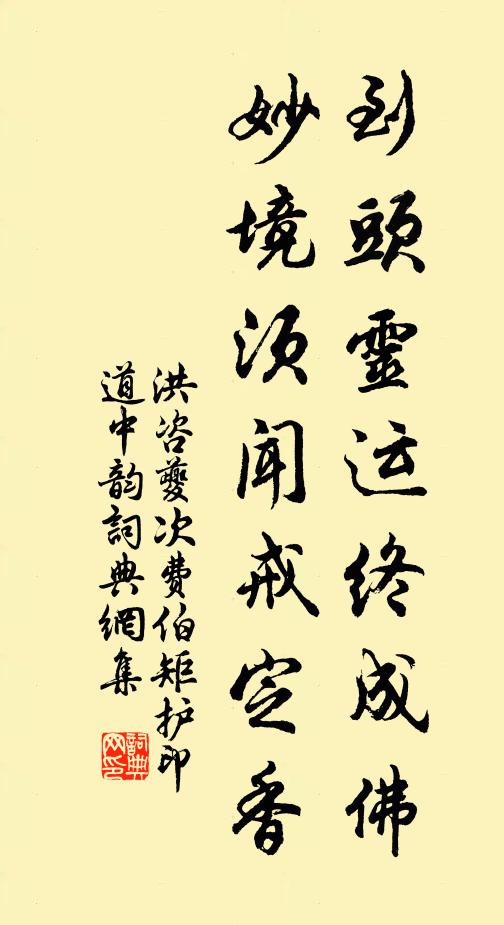 到頭靈运終成佛
妙境須闻戒定香
洪咨夔次費伯矩护印
道中韵詞典網集
詞典網印